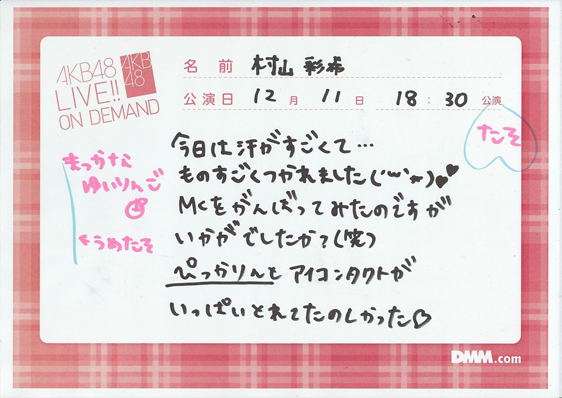 AKB48
LIVE!!
ON DEMAND
AKB
48
名前 村山 彩希
公演日 12月 11日 18:30 公演
今日は汗がすごくて…
ものすごくつかれました(
MCをがんばってみたのですが
いかがでしたか?(笑)
ぴっかりんとアイコンタクトが
いっぱいとれてたのしかった♡
まっかな
ゆいりんご
←うめたそ
たこそ
DMM.com